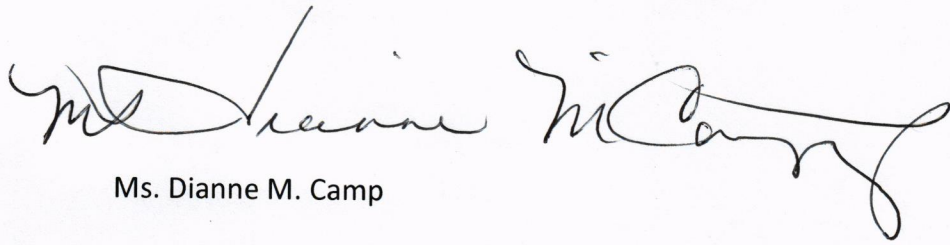 Ms Dianne M Camp
Ms. Dianne M. Camp